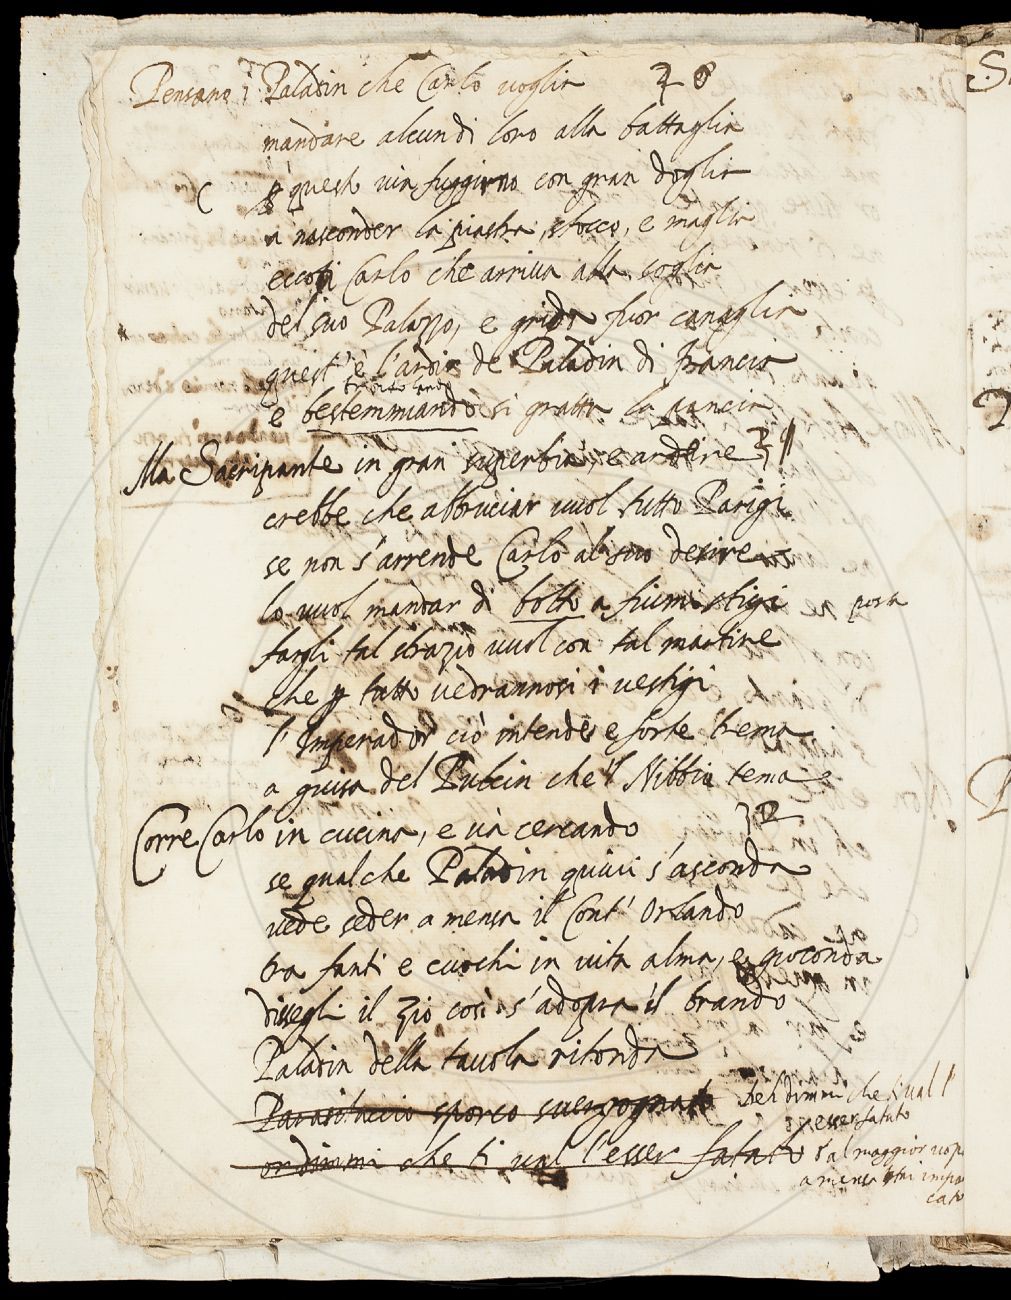 Pensano i Paladin che Carlo voglia 30
mandare alcun di loro alla battaglia
e questi via fuggirno con gran doglia
a nasconder la piastra, stocco, e maglia
eccoti Carlo che arriva alla soglia
del suo Palazzo, e grida fuor canaglia
quest'è l'ardir de Paladin di Francia
e bestemmiando si gratta la pancia
Ma Sacripante in gran superbia, e ardire 31
crebbe che abbruciar vuol tutto Parigi
se non s'arrende Carlo al suo desire
lo vuol mandar di botto a fiumi stigi posta
fargli tal strazio vuol con tal martire
che p tutto vedrannosi i vestigi
l'Imperador ciò intende e forte trema
a guisa del Pulcin che'l Nibbio tema
Corre Carlo in cucina, e và cercando 32
se qualche Paladin quivi s'asconda
vede seder a mensa il Cont' Orlando
tra fanti e cuochi in vita alma, e gioconda
dissegli il zio così s'adopra il brando
Paladin della tavola ritonda
Parasitaccio sporco svergognato deh dimmi che ti val l'
esser fatato
or dimmi che ti val l'esser fatato s'al maggior
a mensa